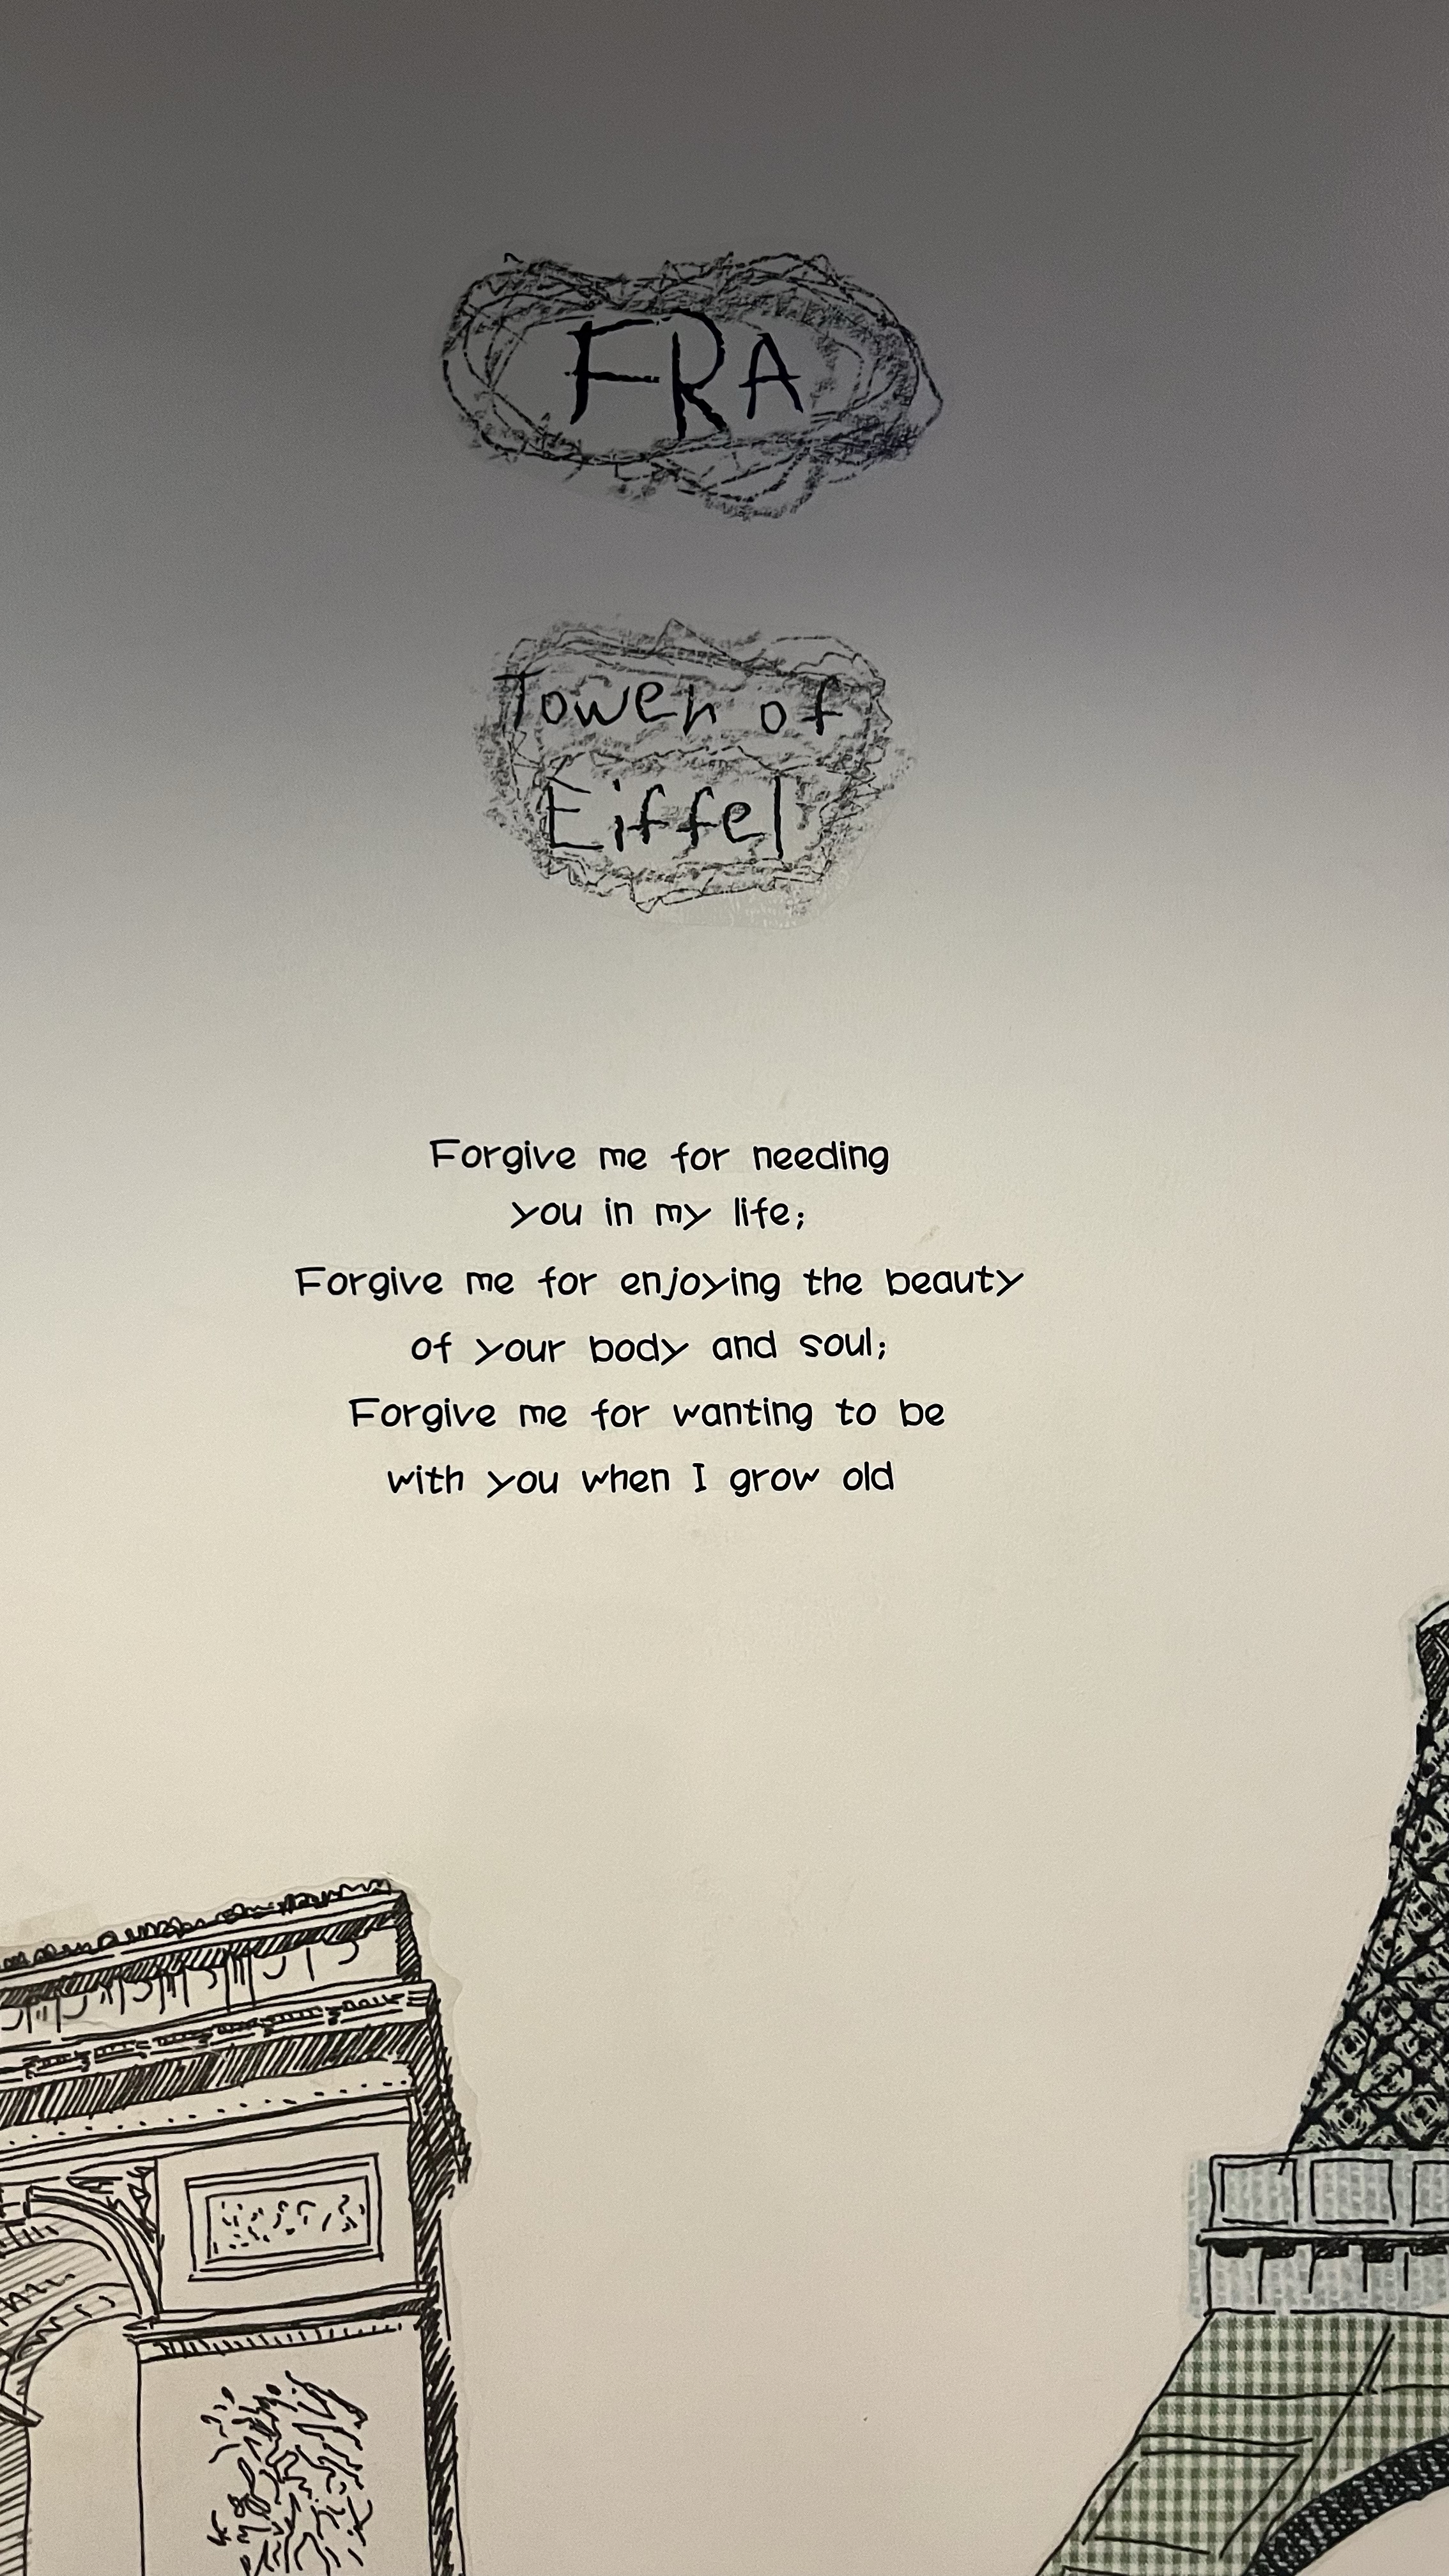 FRA
Tower of
Eiffel
Forgive me for needing
you in my life;
Forgive me for enjoying the beauty
of your body and soul;
Forgive me for wanting to be
with you when I grow old